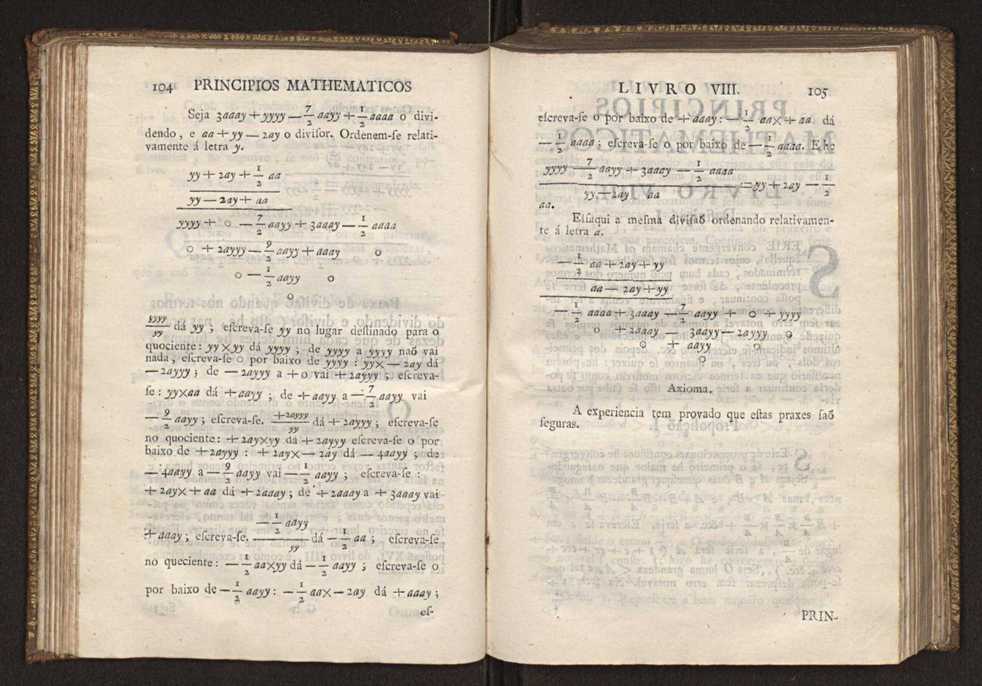 104 PRINCIPIOS MATHEMATICOS
Seja 3aaay + yyyy — 7/2 aayy + 1/2 aaaa o divi-
dendo, e aa + yy — 2ay o divisor. Ordenem-se relati-
vamente á letra y.
yy + 2ay + 1/2 aa
yy — 2ay + aa
yyyy + 0 — 7/2 aayy + 3aaay — 1/2 aaaa
0 + 2ayyy — 9/2 aayy + aaay 0
0 — 1/2 aayy 0
0
yyyy/yy dá yy ; escreva-se yy no lugar destinado para o
quociente: yy×yy dá yyyy ; de yyyy a yyyy naõ vai
nada, escreva-se 0 por baixo de yyyy : yy× — 2ay dá
— 2ayyy ; de — 2ayyy a + 0 vai + 2ayyy ; escreva-
se : yy×aa dá + aayy ; de + aayy a — 7/2 aayy vai
— 9/2 aayy ; escreva-se. +2ayyy/yy dá + 2ayyy ; escreva-se
no quociente : + 2ay×yy dá + 2ayyy escreva-se 0 por
baixo de + 2ayyy : + 2ay× — 2ay dá — 4aayy ; de
— 4aayy a — 9/2 aayy vai — 1/2 aayy ; escreva-se :
+ 2ay× + aa dá + 2aaay ; de + 2aaay a + 3aaay vai
+ aaay ; escreva-se. — 1/2 aayy/yy dá — 1/2 aa ; escreva-se
no queciente : — 1/2 aa×yy dá — 1/2 aayy ; escreva-se 0
por baixo de — 1/2 aayy : — 1/2 aa× — 2ay dá + aaay ;
es-
LIVRO VIII. 105
escreva-se 0 por baixo de + aaay : — 1/2 aa× + aa dá
— 1/2 aaaa ; escreva-se 0 por baixo de — 1/2 aaaa. E he
yyyy — 7/2 aayy + 3aaay — 1/2 aaaa / yy — 2ay aa = yy + 2ay — 1/2
aa.
Eisaqui a mesma divisaõ ordenando relativamen-
te á letra a.
— 1/2 aa + 2ay + yy
aa — 2ay + yy
— 1/2 aaaa + 3aaay — 7/2 aayy + 0 + yyyy
0 + 2aaay — 3aayy — 2ayyy 0
0 + aayy 0
0
Axioma.
A experiencia tem provado que estas praxes saõ
seguras.
PRIN-